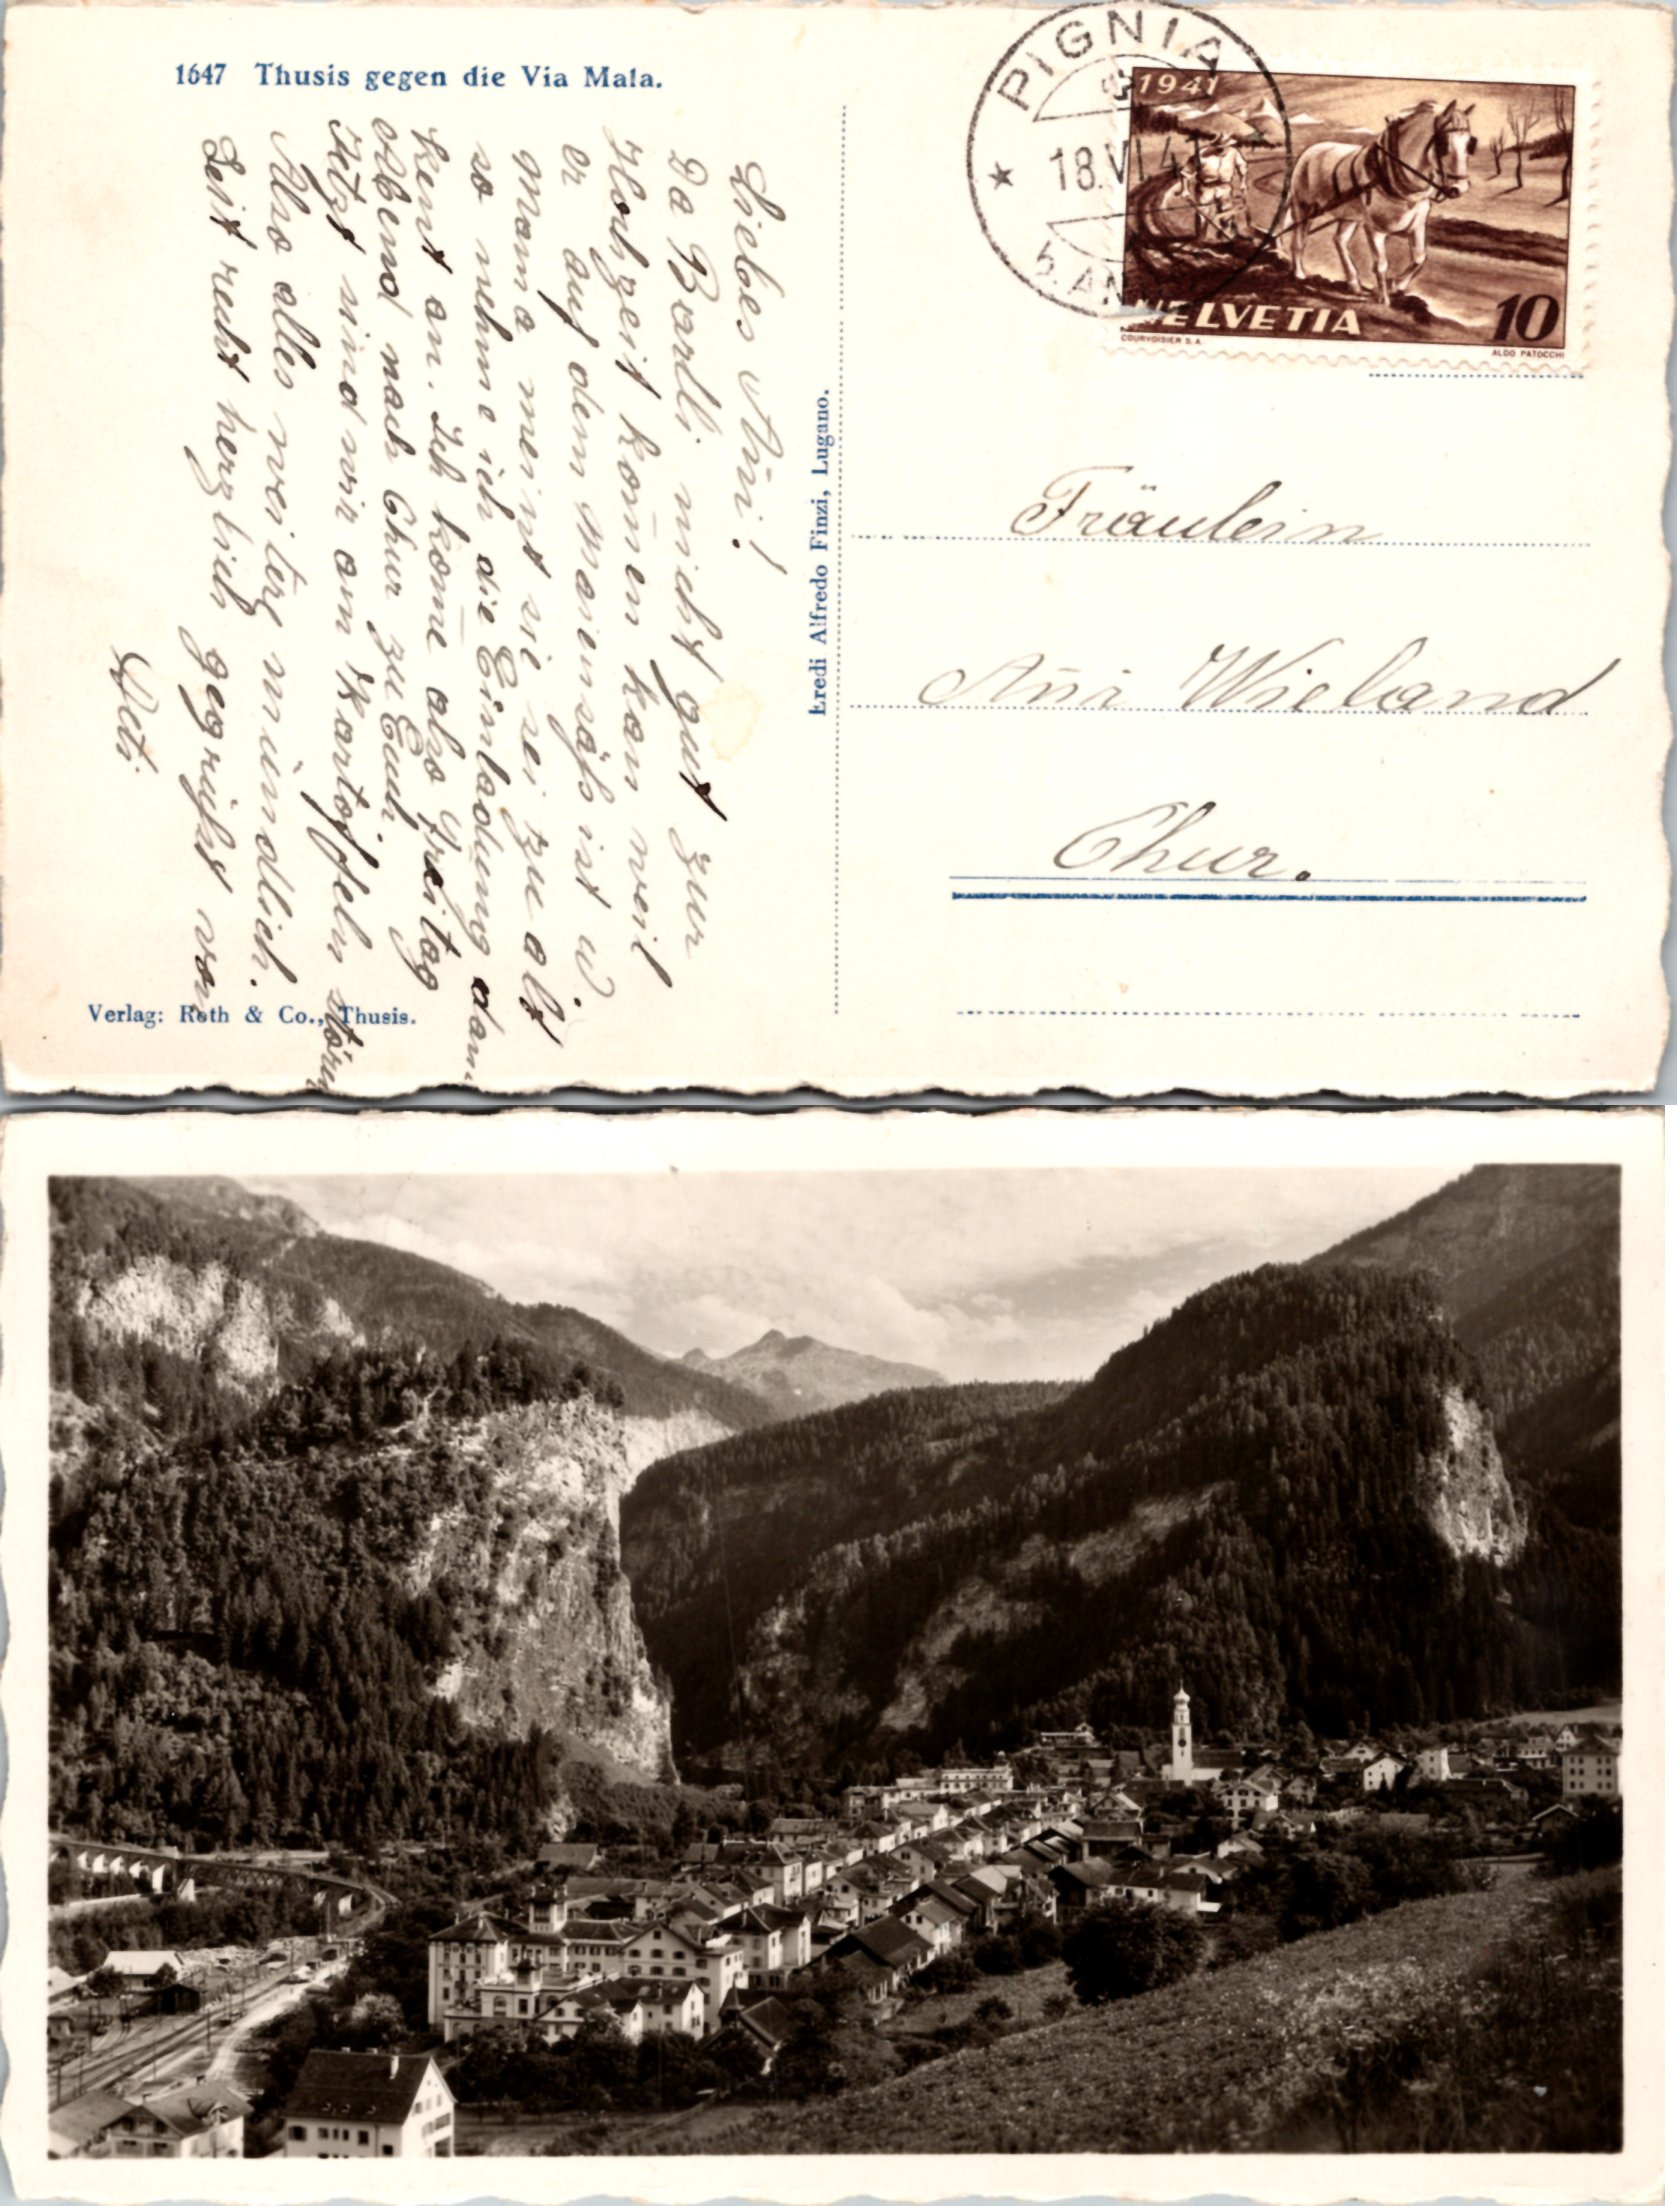 1647 Thusis gegen die Via Mala.
Liebes Añi!
Da Bardli nicht gut zur
Hochzeit kom̄en kan weil
er auf dem Maiensäss ist u.
Mama meint sie sei zu alt
so nehme ich die Einladung dankent an. Ich kom̄e also Freitag
Abend nach Chur zu Euch.
Jetzt sind wir am Kartoffeln
Also alles weitere mündlich.
Seit recht herzlich gegrüsst von
Deti.
Verlag: Roth & Co., Thusis.
Eredi Alfredo Finzi, Lugano.
PIGNIA
18.VI.41
1941
HELVETIA
10
COURVOISIER S.A.
ALDO PATOCCHI
Fräulein
Añi Wieland
Chur.